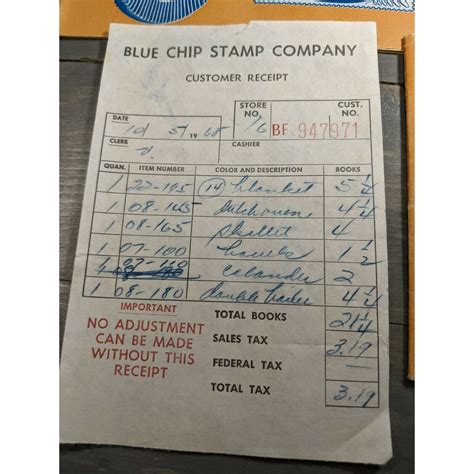 BLUE CHIP STAMP COMPANY
CUSTOMER RECEIPT
DATE 10/5/1968 STORE NO. 16 CUST. NO. BF 947971
CLERK CASHIER
QUAN. ITEM NUMBER COLOR AND DESCRIPTION BOOKS
1 22-195 (14) blanket 5 1/4
1 08-145 dutch oven 4 1/4
1 08-165 skillet 4
1 07-100 bowls 1 1/2
07-110 colander 2
1 08-180 double boiler 4 1/4
IMPORTANT
NO ADJUSTMENT
CAN BE MADE
WITHOUT THIS
RECEIPT
TOTAL BOOKS 21 1/4
SALES TAX 3.19
FEDERAL TAX
TOTAL TAX 3.19